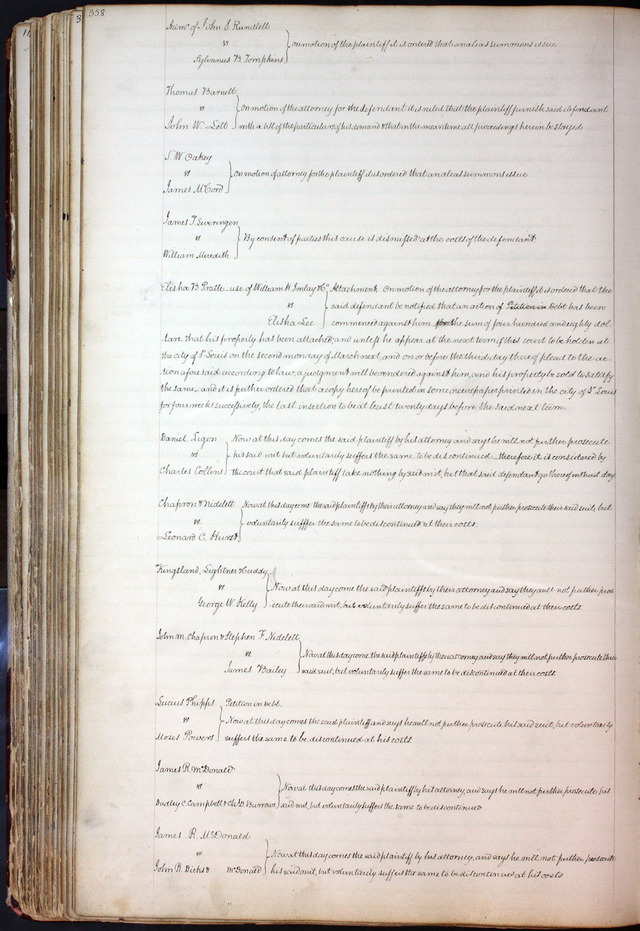 358
Adm^r of John S Rundlett
vs } on motion of the plaintiff it is ordered that an alias summons issue
Sylvanus B. Tompkins
Thomas Barnett
vs } on motion of the attorney for the defendant it is ruled that the plaintiff furnish said defendant
John W. Lott } with a bill of the particulars of his demand & that in the mean time all proceedings herein be stayed
S. W. Oakey
vs } on motion of attorney for the plaintiff it is ordered that an alias summons issue
James McCord
James T. Sweringen
vs } By consent of parties this cause is dismissed at the costs of the defendant
William Meredith
Elisha B Pratte use of William H. Imlay & Co { Attachment, On motion of the attorney for the plaintiff it is ordered that the
vs said defendant be notified that an action of Petition in Debt has been
Elisha Lee commenced against him for the sum of four hundred and eighty dol-
lars that his property has been attached, and unless he appear at the next term of this court to be holden at
the city of St Louis on the second monday of March next, and on or before the third day thereof plead to the ac-
tion aforesaid according to law, a judgment will be rendered against him, and his property be sold to satisfy
the same and it is further ordered that a copy hereof be printed in some newspaper printed in the city of St Louis
for four weeks successively, the last insertion to be at least twenty days before the said next term.
Daniel Ligon } Now at this day comes the said plaintiff by his attorney and says he will not further prosecute
vs his said suit but voluntarily suffers the same to be discontinued therefore it is considered by
Charles Collins } the court that said plaintiff take nothing by said writ, but that said defendant go thereof without day
Chapron & Nidelett } Now at this day come the said plaintiffs by their attorney and say they will not further prosecute their said suit, but
vs voluntarily suffer the same to be discontinued at their costs.
Leonard C. Hurst
Kingsland, Lightner & Cuddy
vs } Now at this day come the said plaintiffs by their attorney and say they will not further pros-
George W. Kelly } ecute their said suit, but voluntarily suffer the same to be discontinued at their costs.
John M. Chapron & Stephen F. Nidelett
vs } Now at this day come the said plaintiffs by their attorney and say they will not further prosecute their
James Bailey } said suit, but voluntarily suffer the same to be discontinued at their costs.
Lucius Phipps } Petition in debt.
vs } Now at this day comes the said plaintiff and says he will not further prosecute his said suit, but voluntarily
Moses Powers } suffers the same to be discontinued at his costs.
James R. McDonald
vs } Now at this day comes the said plaintiff by his attorney, and says he will not further prosecute his
Dudley C. Campbell & Burrows } said suit, but voluntarily suffers the same to be discontinued
James R. McDonald
vs } Now at this day comes the said plaintiff by his attorney, and says he will not further prosecute
John B. & McDonald } his said suit, but voluntarily suffers the same to be discontinued at his costs.